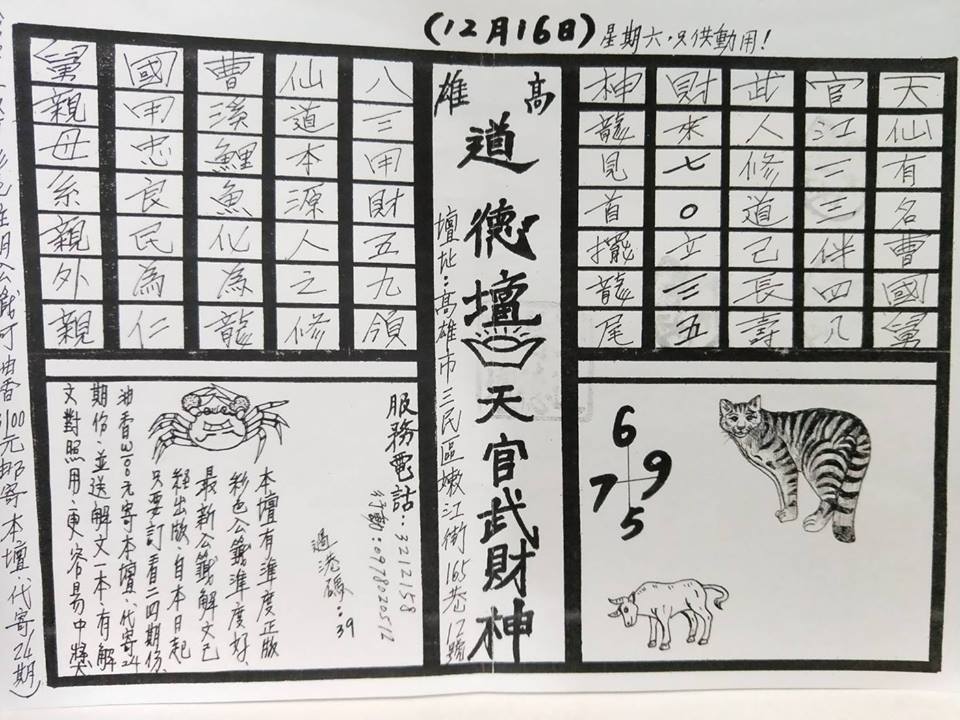 (12月16日)星期六，只供動用！
天仙有名曹國舅
官江二三伴四八
武人修道己長壽
財來七0立三五
神龍見首擺龍尾
高雄
道德壇
天官武財神
壇址：高雄市三民區嫩江街165巷12號
八三用財五九領
仙道本源人之修
曹溪鯉魚化為龍
國用忠良民為仁
舅親母系親外親
6
7 9
5
服務電話：3212158
行動：0978020512
過港碼：39
本壇有準度正版
彩色公籤準度好、
最新公籤解文已
經出版、自本日起
只要訂看二四期份、
油香3100元寄本壇、代寄24
期份、並送解文一本、有解
文對照用、更容易中獎
元郵寄本壇、代寄24期)